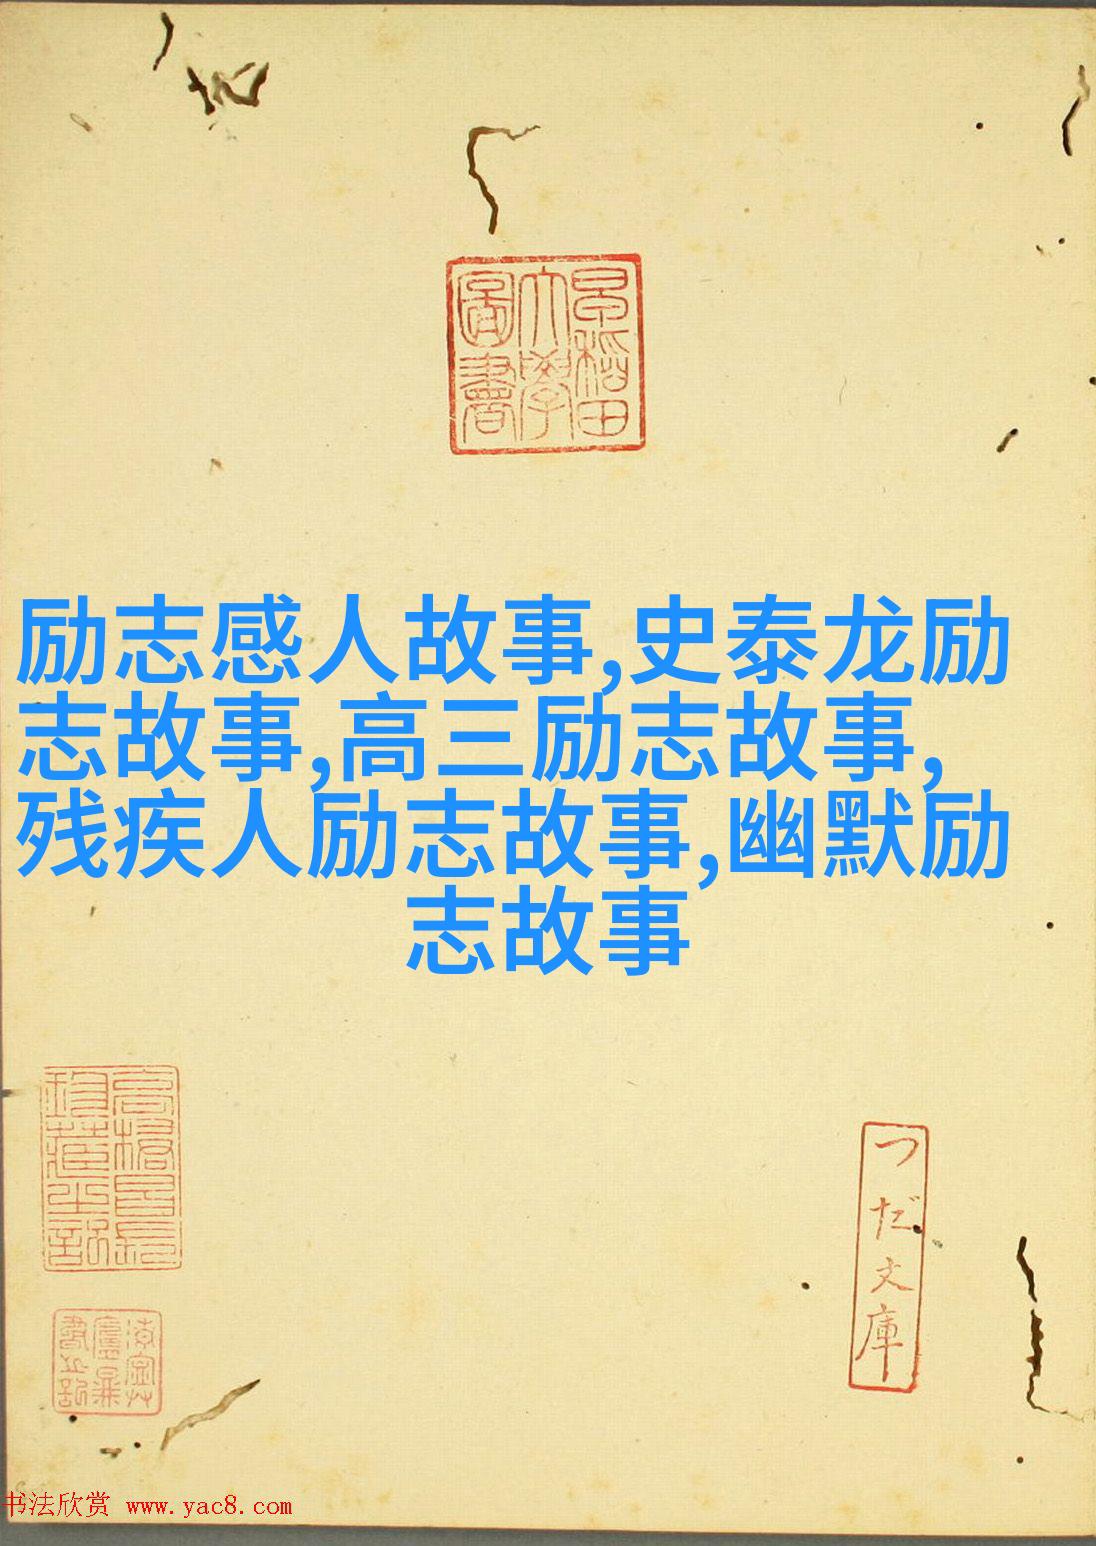 早稲田
大學
圖書
励志感人故事,史泰龙励
志故事,高三励志故事,
残疾人励志故事,幽默励
志故事
つだ文庫
书法欣赏 www.yac8.com